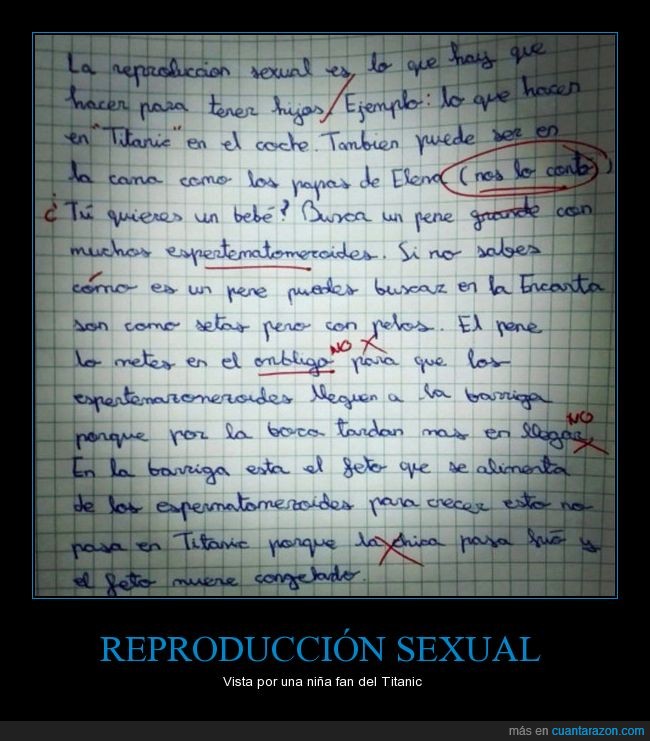 La reproduccion sexual es lo que hay que
hacer para tener hijos. Ejemplo: lo que hacen
en "Titanic" en el coche. Tambien puede ser en
la cama como los papas de Elena (nos lo conto)
¿Tú quieres un bebé? Busca un pene grande con
muchos espertematomeroides. Si no sabes
cómo es un pene puedes buscaz en la Encarta
son como setas pero con pelos. El pene
NO
lo metes en el ombligo para que los
espertemaromeroides lleguen a la barriga
NO
porque por la boca tardan mas en llegar.
En la barriga esta el feto que se alimenta
de los espermatomeroides para crecer esto no
pasa en Titanic porque la chica pasa frió y
el feto muere congelado.
REPRODUCCIÓN SEXUAL
Vista por una niña fan del Titanic
más en cuantarazon.com